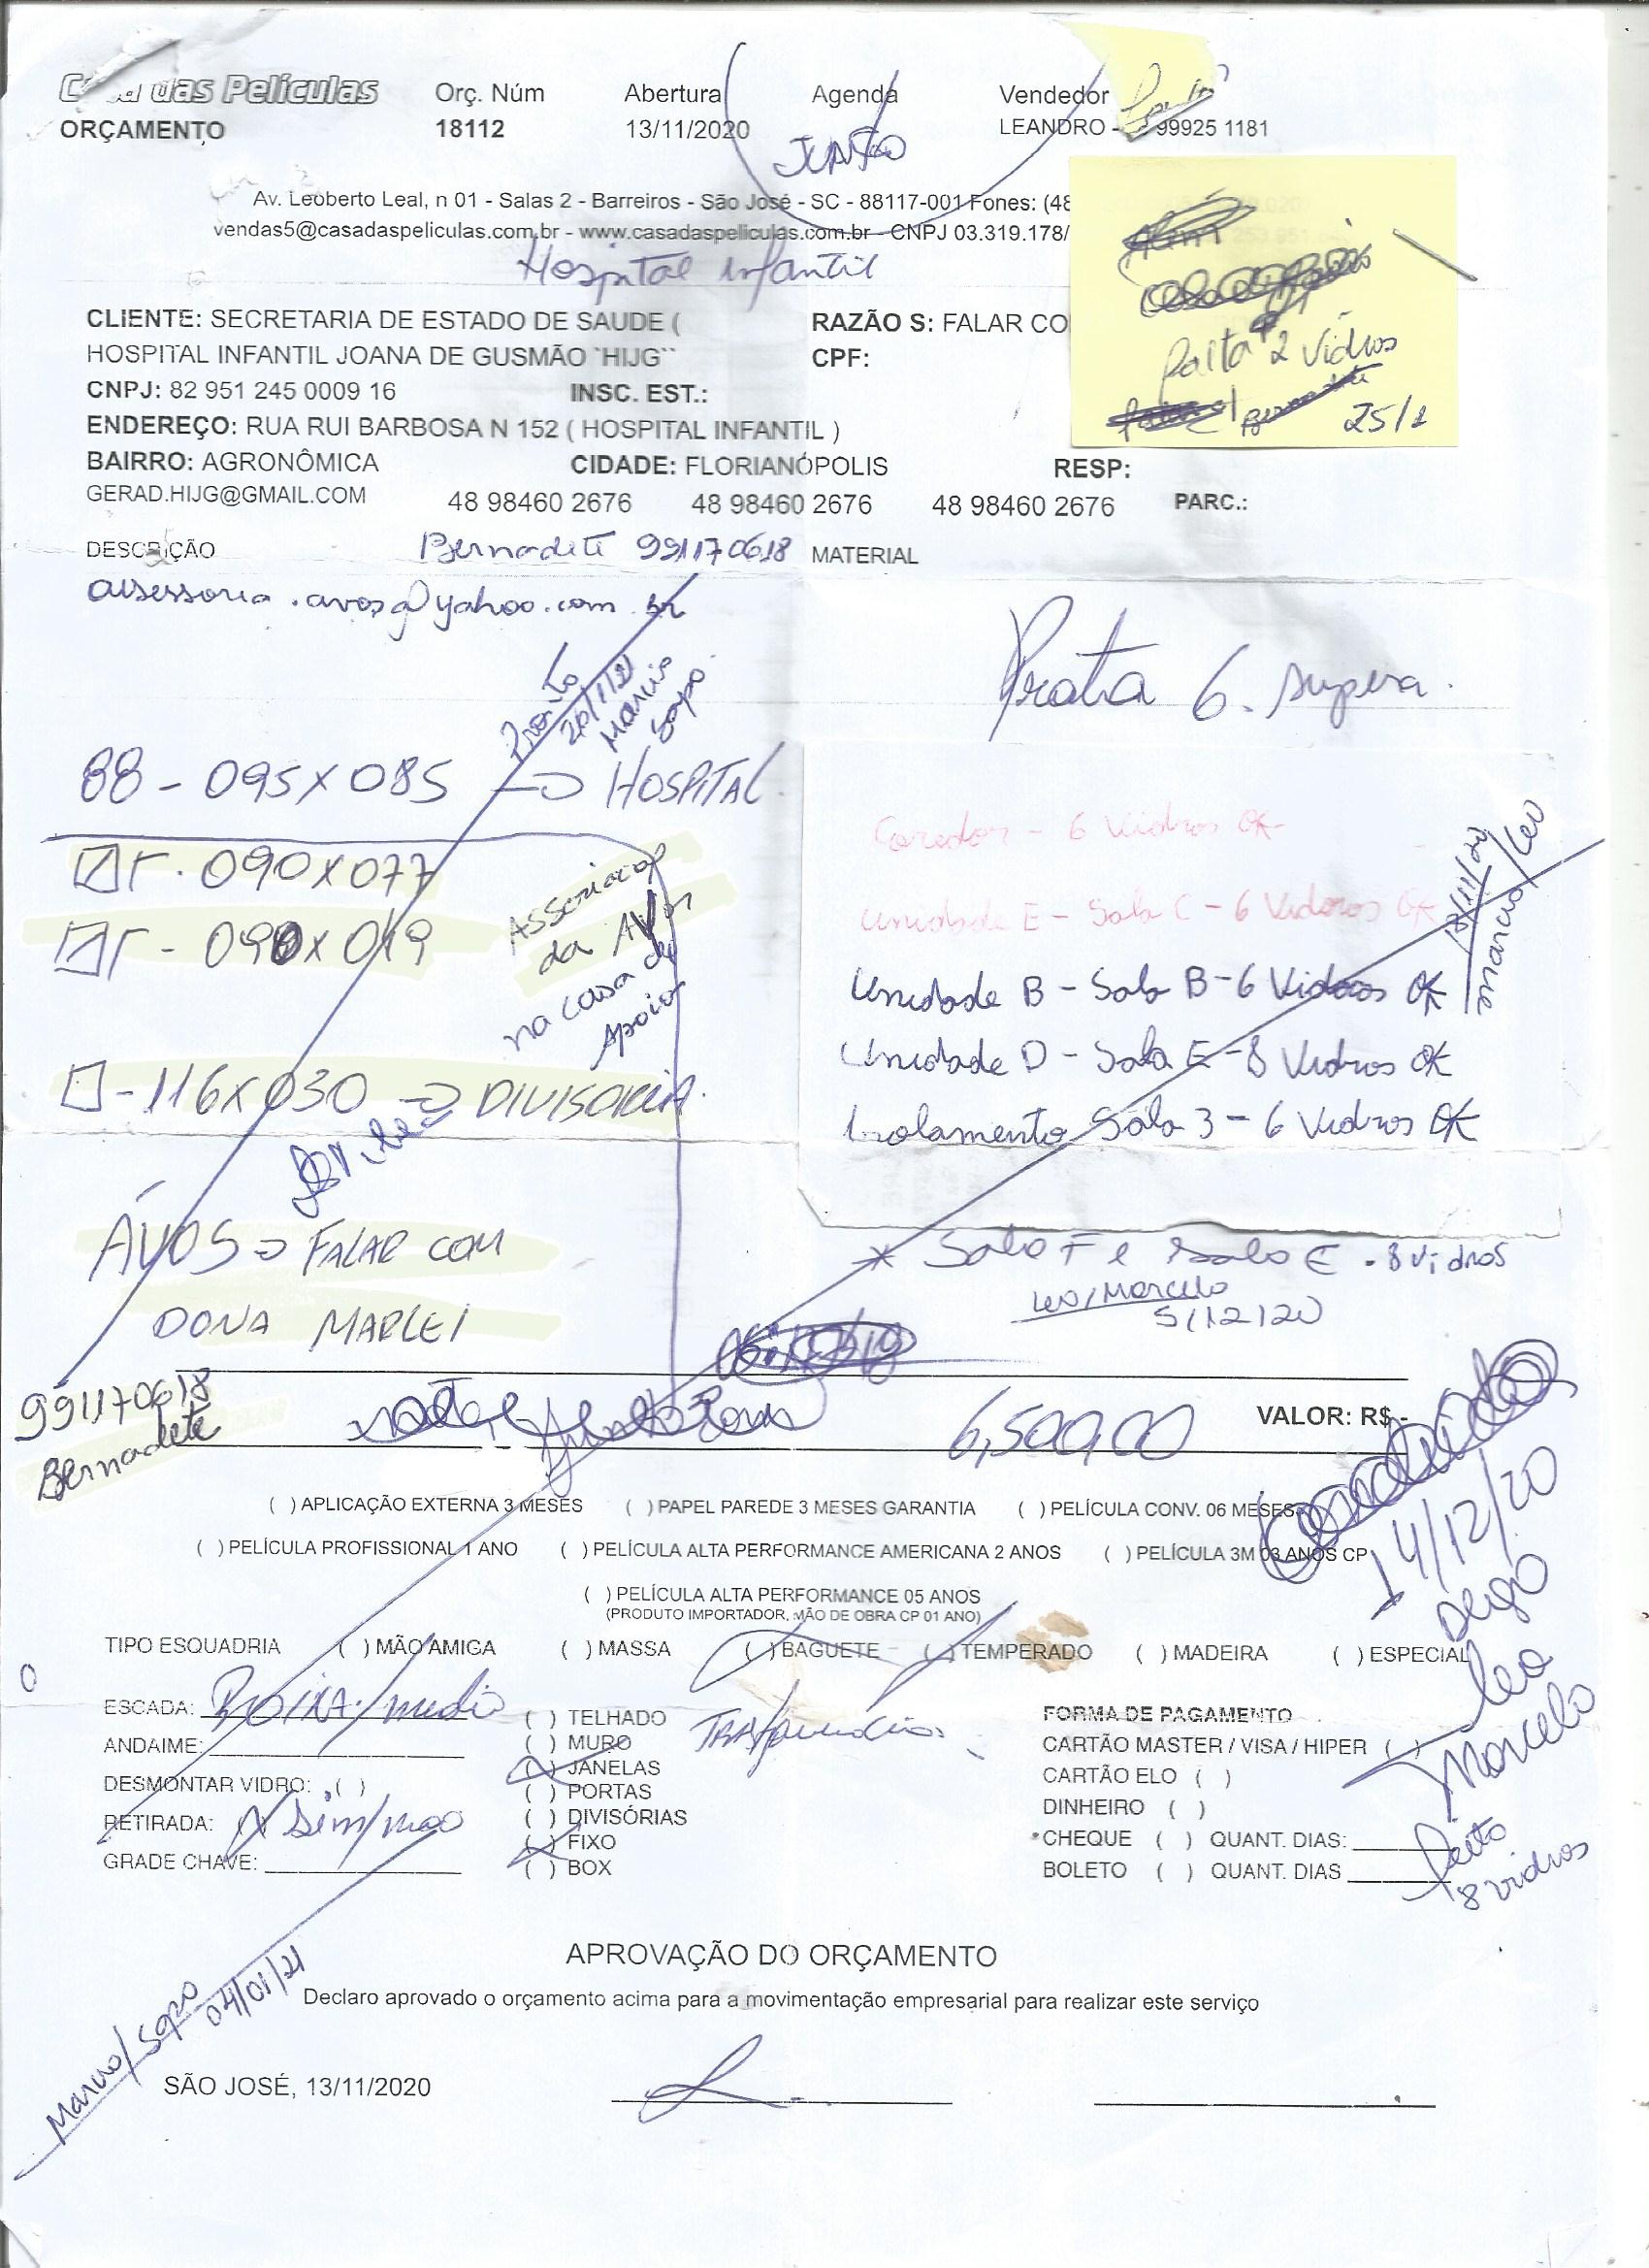 Casa das Películas
ORÇAMENTO
Orç. Núm
18112
Abertura
13/11/2020
Agenda
Vendedor
LEANDRO - 99925 1181
Av. Leoberto Leal, n 01 - Salas 2 - Barreiros - São José - SC - 88117-001 Fones: (48
vendas5@casadaspeliculas.com.br - www.casadaspeliculas.com.br - CNPJ 03.319.178/
Hospital infantil
Falta 2 Vidros
25/1
CLIENTE: SECRETARIA DE ESTADO DE SAUDE (
HOSPITAL INFANTIL JOANA DE GUSMÃO `HIJG``
RAZÃO S: FALAR CO
CPF:
CNPJ: 82 951 245 0009 16 INSC. EST.:
ENDEREÇO: RUA RUI BARBOSA N 152 ( HOSPITAL INFANTIL )
BAIRRO: AGRONÔMICA CIDADE: FLORIANÓPOLIS RESP:
GERAD.HIJG@GMAIL.COM 48 98460 2676 48 98460 2676 48 98460 2676 PARC.:
DESCRIÇÃO Bernadete 991170618 MATERIAL
assessoria.avos@yahoo.com.br
Prata 6. supera.
Pronto
26/1/21
Marcio
Sapo
88 - 095 x 085 → HOSPITAL
090 x 077
090 x 019
da
na casa de
Apoio
116 x 030 → DIVISORIA.
Corredor - 6 Vidros OK
Unidade E - Sala C - 6 Vidros OK
Unidade B - Sala B - 6 Vidros OK
Unidade D - Sala E - 8 Vidros OK
Isolamento Sala 3 - 6 Vidros OK
/11/20
marcio/Leo
* Sala F e Sala E - 8 vidros
Leo/Marcelo
5/12/20
ÁVOS → FALAR COM
DONA MARLEI
991170618
Bernadete
6,500,00 VALOR: R$ -
( ) APLICAÇÃO EXTERNA 3 MESES ( ) PAPEL PAREDE 3 MESES GARANTIA ( ) PELÍCULA CONV. 06 MESES
( ) PELÍCULA PROFISSIONAL 1 ANO ( ) PELÍCULA ALTA PERFORMANCE AMERICANA 2 ANOS ( ) PELÍCULA 3M 03 ANOS CP
( ) PELÍCULA ALTA PERFORMANCE 05 ANOS
(PRODUTO IMPORTADOR, MÃO DE OBRA CP 01 ANO)
14/12/20
Leo
Marcelo
feito
8 vidros
TIPO ESQUADRIA ( ) MÃO AMIGA ( ) MASSA ( ) BAGUETE ( ) TEMPERADO ( ) MADEIRA ( ) ESPECIAL
ESCADA:
ANDAIME:
DESMONTAR VIDRO: ( )
RETIRADA: (X) Sim/
GRADE CHAVE:
( ) TELHADO
( ) MURO
( ) JANELAS
( ) PORTAS
( ) DIVISÓRIAS
( ) FIXO
( ) BOX
FORMA DE PAGAMENTO
CARTÃO MASTER / VISA / HIPER ( )
CARTÃO ELO ( )
DINHEIRO ( )
*CHEQUE ( ) QUANT. DIAS:
BOLETO ( ) QUANT. DIAS
APROVAÇÃO DO ORÇAMENTO
Declaro aprovado o orçamento acima para a movimentação empresarial para realizar este serviço
Marcio/Sapo 04/01/21
SÃO JOSÉ, 13/11/2020